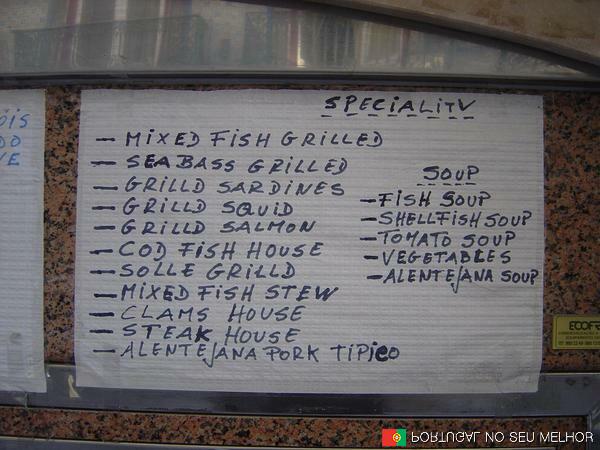 SPECIALITY
- MIXED FISH GRILLED
- SEABASS GRILLED
- GRILLD SARDINES
- GRILLD SQUID
- GRILLD SALMON
- COD FISH HOUSE
- SOLLE GRILLD
- MIXED FISH STEW
- CLAMS HOUSE
- STEAK HOUSE
- ALENTEJANA PORK TIPICO
SOUP
- FISH SOUP
- SHELLFISH SOUP
- TOMATO SOUP
- VEGETABLES
- ALENTEJANA SOUP
ÓIS
DO
VE
ECOFR
PORTUGAL NO SEU MELHOR